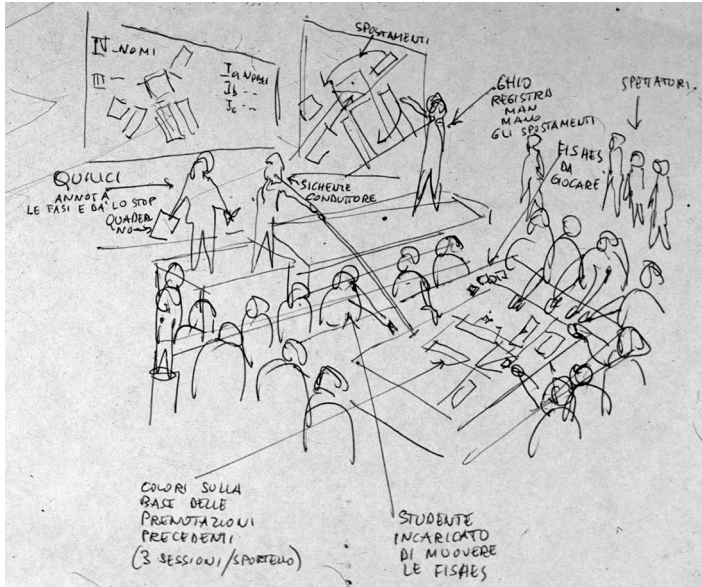 IV_NOMI
III -
Ia NOMI
Ib - -
Ic - -
SPOSTAMENTI
GHIO
REGISTRA
MAN
MANO
GLI SPOSTAMENTI
SPETTATORI.
FISHES
DA
GIOCARE
QUILICI
ANNOTA
LE FASI E DA' LO STOP
QUADER
NO
SICHENZE
CONDUTTORE
COLORI SULLA
BASE DELLE
PRENOTAZIONI
PRECEDENTI
(3 SESSIONI/SPORTELLO)
STUDENTE
INCARICATO
DI MUOVERE
LE FISHES